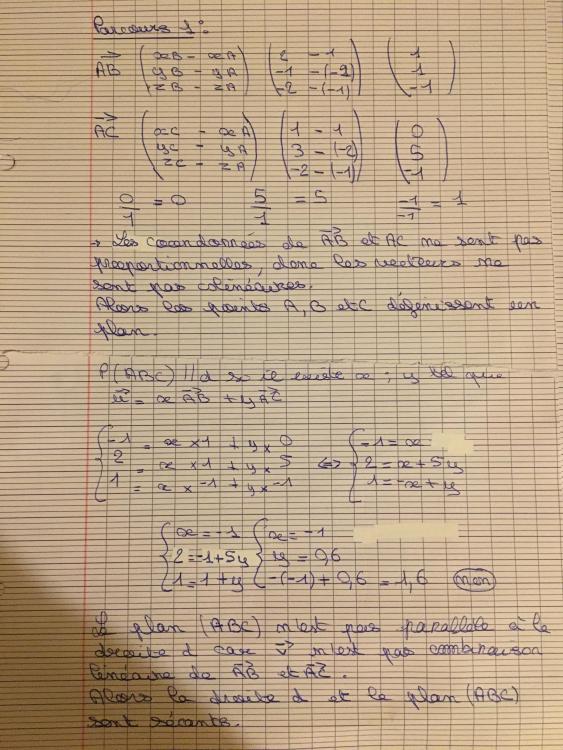 Parcours 1 :
AB→ (xB - xA) (2 - 1) (1)
(yB - yA) (-1 - (-2) (1)
(zB - zA) (-2 - (-1)) (-1)
AC→ (xC - xA) (1 - 1) (0)
(yC - yA) (3 - (-2) (5)
(zC - zA) (-2 - (-1)) (-1)
0/1 = 0 5/1 = 5 -1/-1 = 1
→ Les coordonnées de AB→ et AC ne sont pas
proportionnelles, donc les vecteurs ne
sont pas colinéaires.
Alors les points A, B et C définissent un
plan.
P(ABC) // d si il existe x ; y tel que
u→ = x AB→ + y AC→
{ -1 = x × 1 + y × 0 ⇔ { -1 = x
{ 2 = x × 1 + y × 5 { 2 = x + 5y
{ 1 = x × -1 + y × -1 { 1 = -x + y
{ x = -1 { x = -1
{ 2 = -1 + 5y { y = 0,6
{ 1 = 1 + y { -(-1) + 0,6 = 1,6 non
Le plan (ABC) n'est pas parallèle à la
droite d car u→ n'est pas combinaison
linéaire de AB→ et AC→.
Alors la droite d et le plan (ABC)
sont sécants.